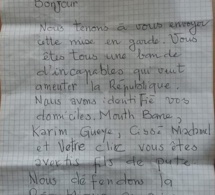 Bonjour
Nous tenons à vous envoyer
cette mise en garde. Vous
êtes tous une bande
d'incapables qui veut
ameuter la République.
Nous avons identifié vos
domiciles. Month Bane,
Karim Gueye, Cissé Madane
et votre clic vous êtes
avertis fils de pute
Nous défendons la